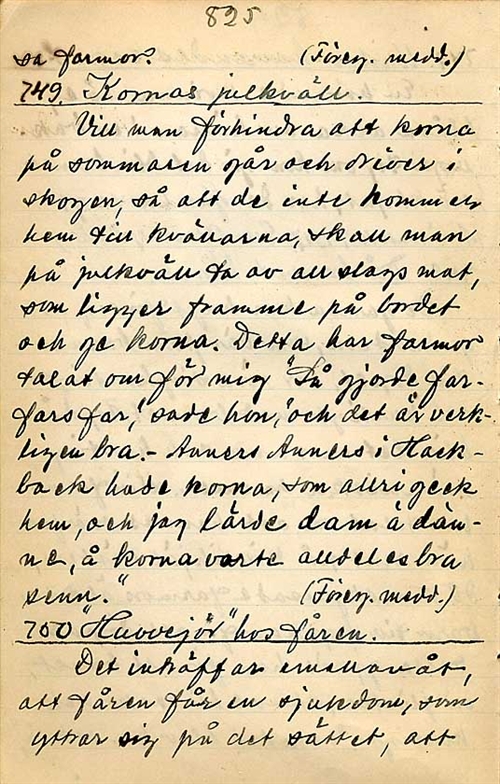 825
sa farmor. (Föreg. medd.)
749. Kornas julkväll.
Vill man förhindra att korna
på sommaren går och dröver i
skogen, så att de inte kommer
hem till kvällarna, skall man
på julkväll ta av all slags mat,
som ligger framme på bordet
och ge korna. Detta har farmor
talat om för mig "Så gjorde far-
fars far," sade hon, "och det är verk-
ligen bra. - Anners Anners i Hack-
back hade korna, som allri geck
hem, och jag lärde dam å dän-
ne, å korna varte alldeles bra
senn." (Föreg. medd.)
750 "Huvvejör" hos fåren.
Det inträffar emellanåt,
att fåren får en sjukdom, som
yttrar sig på det sättet, att